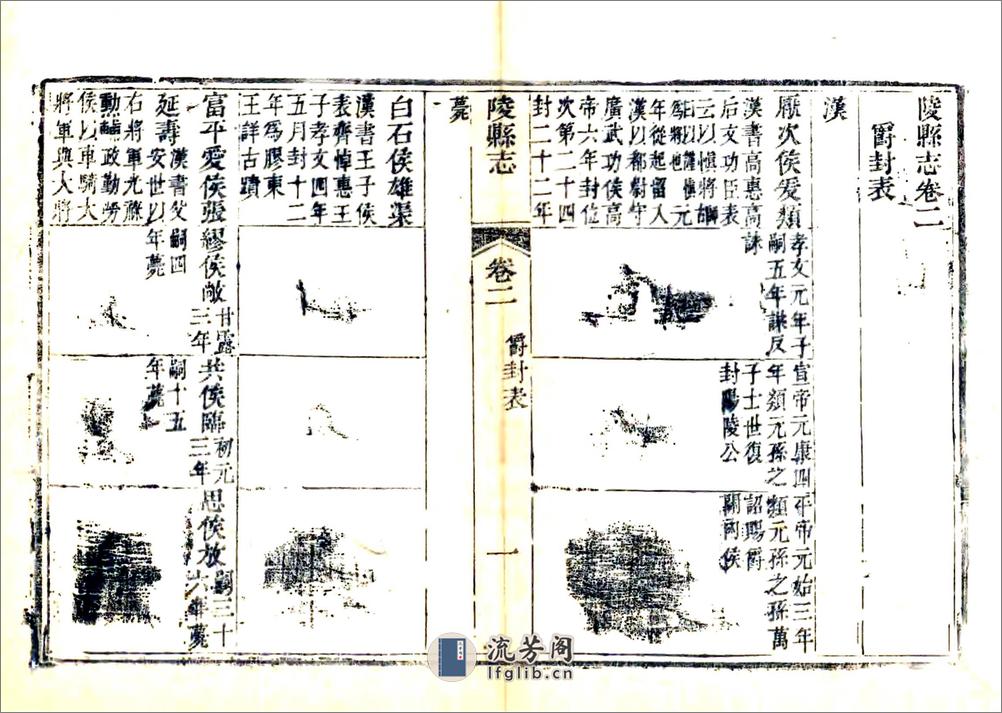 陵縣志卷二
爵封表
漢
厭次侯爰類
漢書高惠高
后文功臣表
云以愼將
元
年從起留入
漢以都尉守
廣武功侯高
帝六年封位
次第二十四
封二十二年
薨
孝文元年子
嗣五年謀反
誅
宣帝元康四
年類元孫之
子士世復
封陽陵公
平帝元始三年
類元孫之孫萬
詔賜爵
關內侯
陵縣志
卷二
爵封表
一
白石侯雄渠
漢書王子侯
表齊悼惠王
子孝文四年
五月封十二
年爲膠東
王詳古蹟
富平愛侯張
延壽
漢書父
安世以
右將軍光祿
勳輔政勤勞
侯以車騎大
將軍與大將
繆侯敞
甘露三年
嗣四年薨
共侯臨
初元三年
嗣十五年薨
思侯放
嗣三十六年薨
流芳阁
lfglib.cn